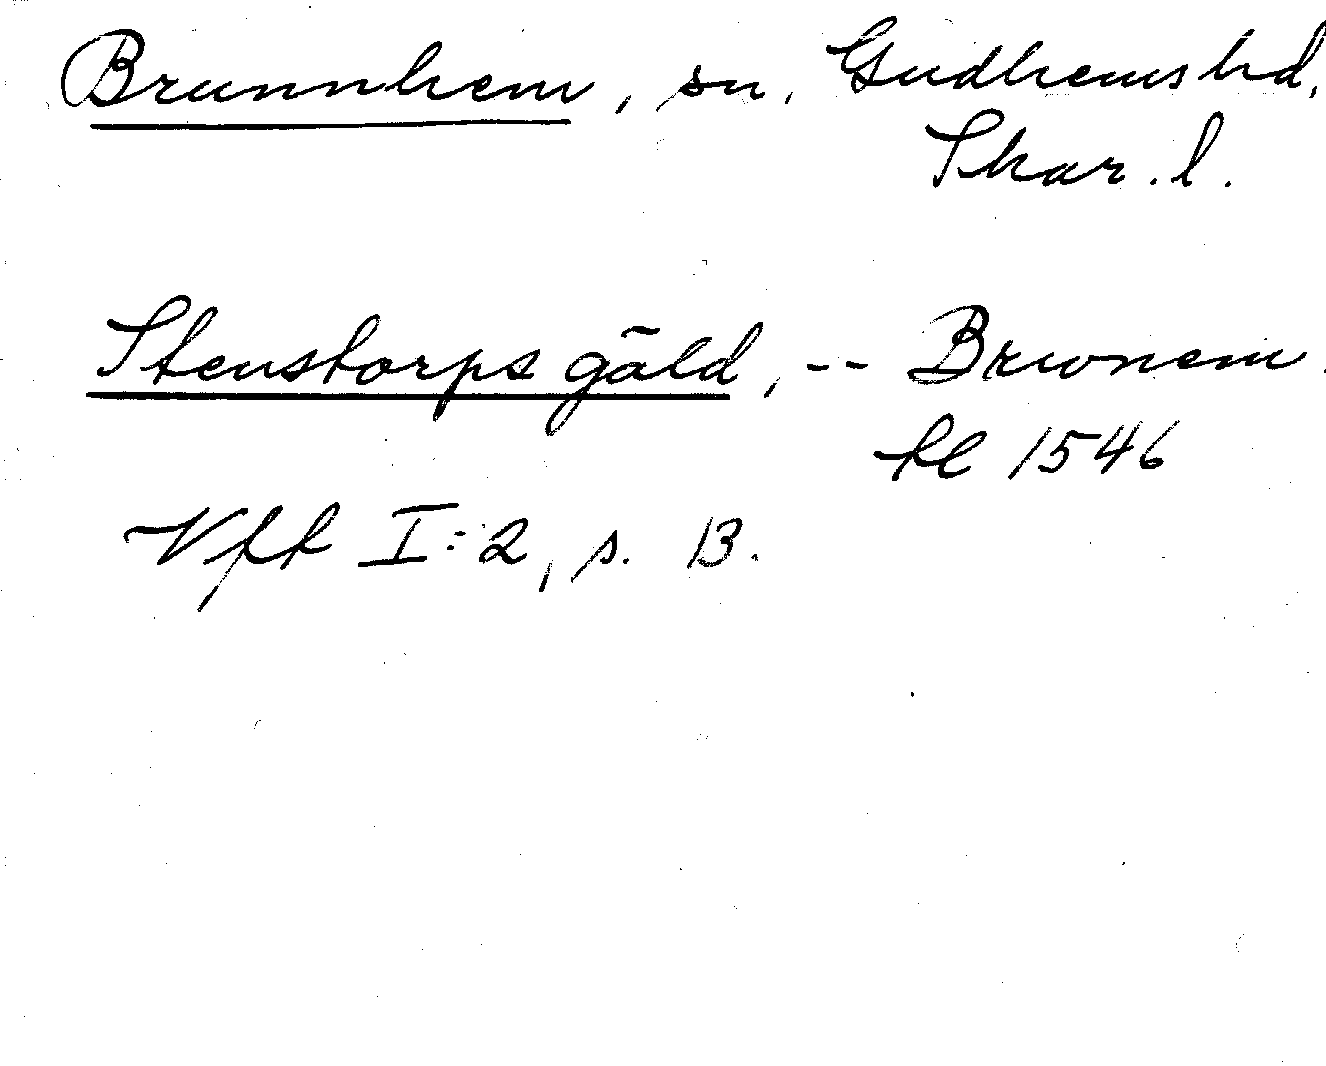 Brunnhem, sn, Gudhems hd,
Skar. l.
Stenstorps gäld, -- Brwnem.
kl 1546
Vfk I:2, s. 13.